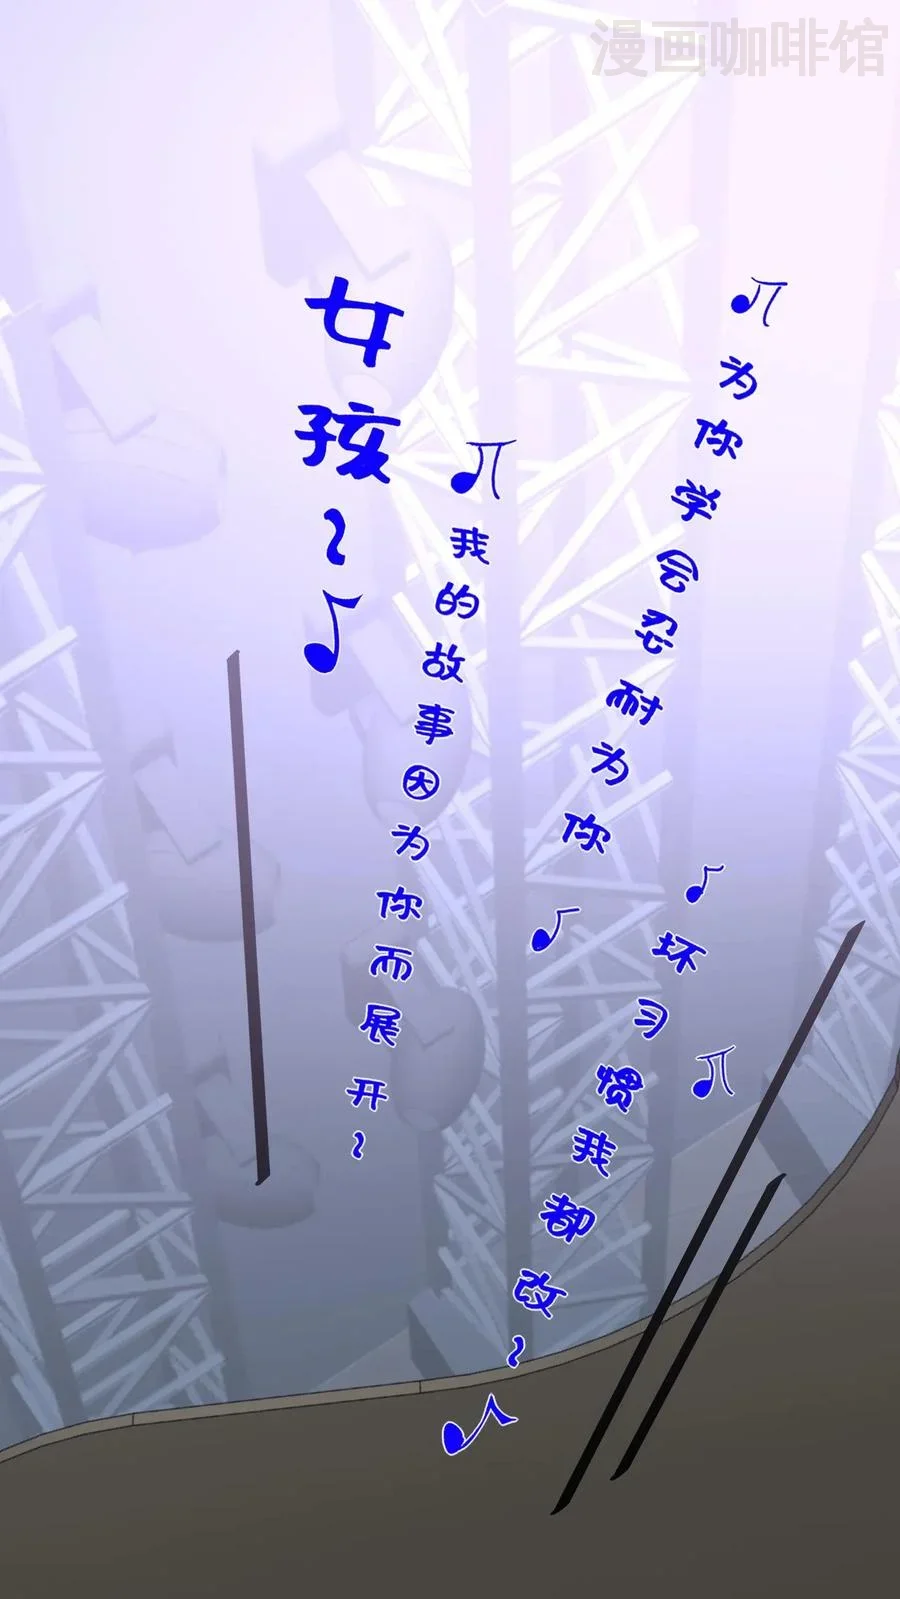 漫画咖啡馆
为你学会忍耐为你
坏习惯我都改~
我的故事因为你而展开~
女孩~